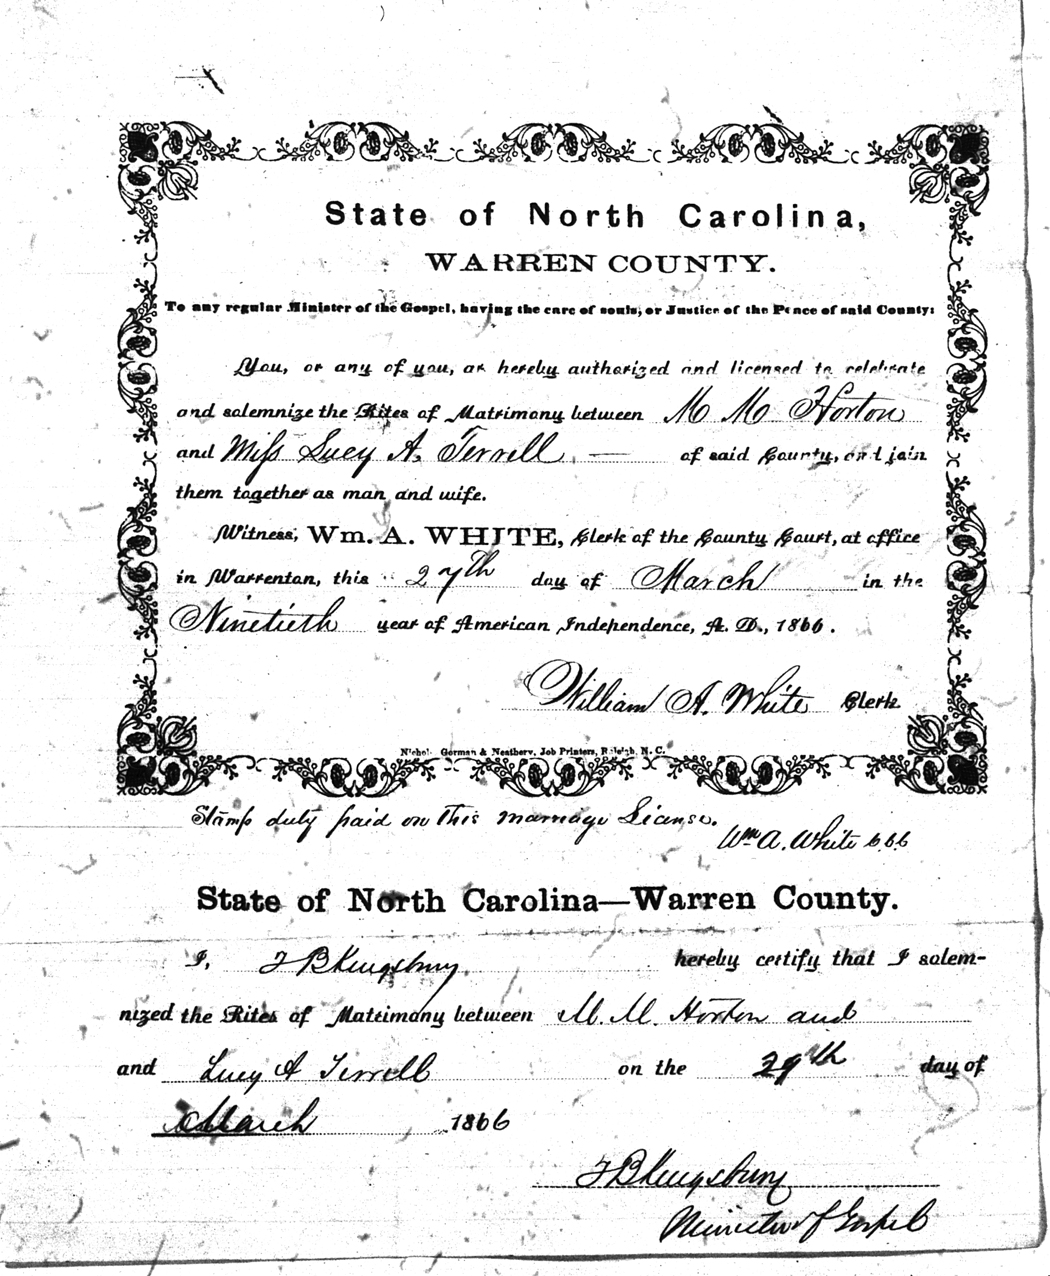 State of North Carolina,
WARREN COUNTY.
To any regular Minister of the Gospel, having the care of souls, or Justice of the Peace of said County:
You, or any of you, are hereby authorized and licensed to celebrate
and solemnize the Rites of Matrimony between M M Horton
and Miss Lucy A. Terrell of said County, and join
them together as man and wife.
Witness, Wm. A. WHITE, Clerk of the County Court, at office
in Warrenton, this 27th day of March in the
Ninetieth year of American Independence, A. D., 1866.
William A. White Clerk
Nichols Gorman & Neathery, Job Printers, Raleigh, N. C.
Stamp duty paid on this marriage License.
Wm A. White
State of North Carolina—Warren County.
I, T B Kingsbury hereby certify that I solem-
nized the Rites of Matrimony between M. M. Horton and
and Lucy A Terrell on the 29th day of
March 1866
T B Kingsbury
Minister of Gospel